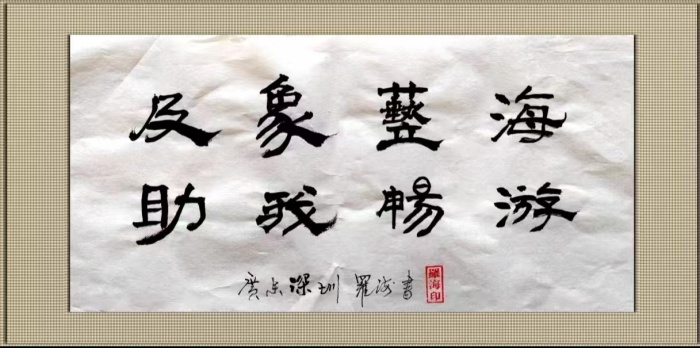 及象藝海
助我暢游
廣东深圳 羅海書
羅海印